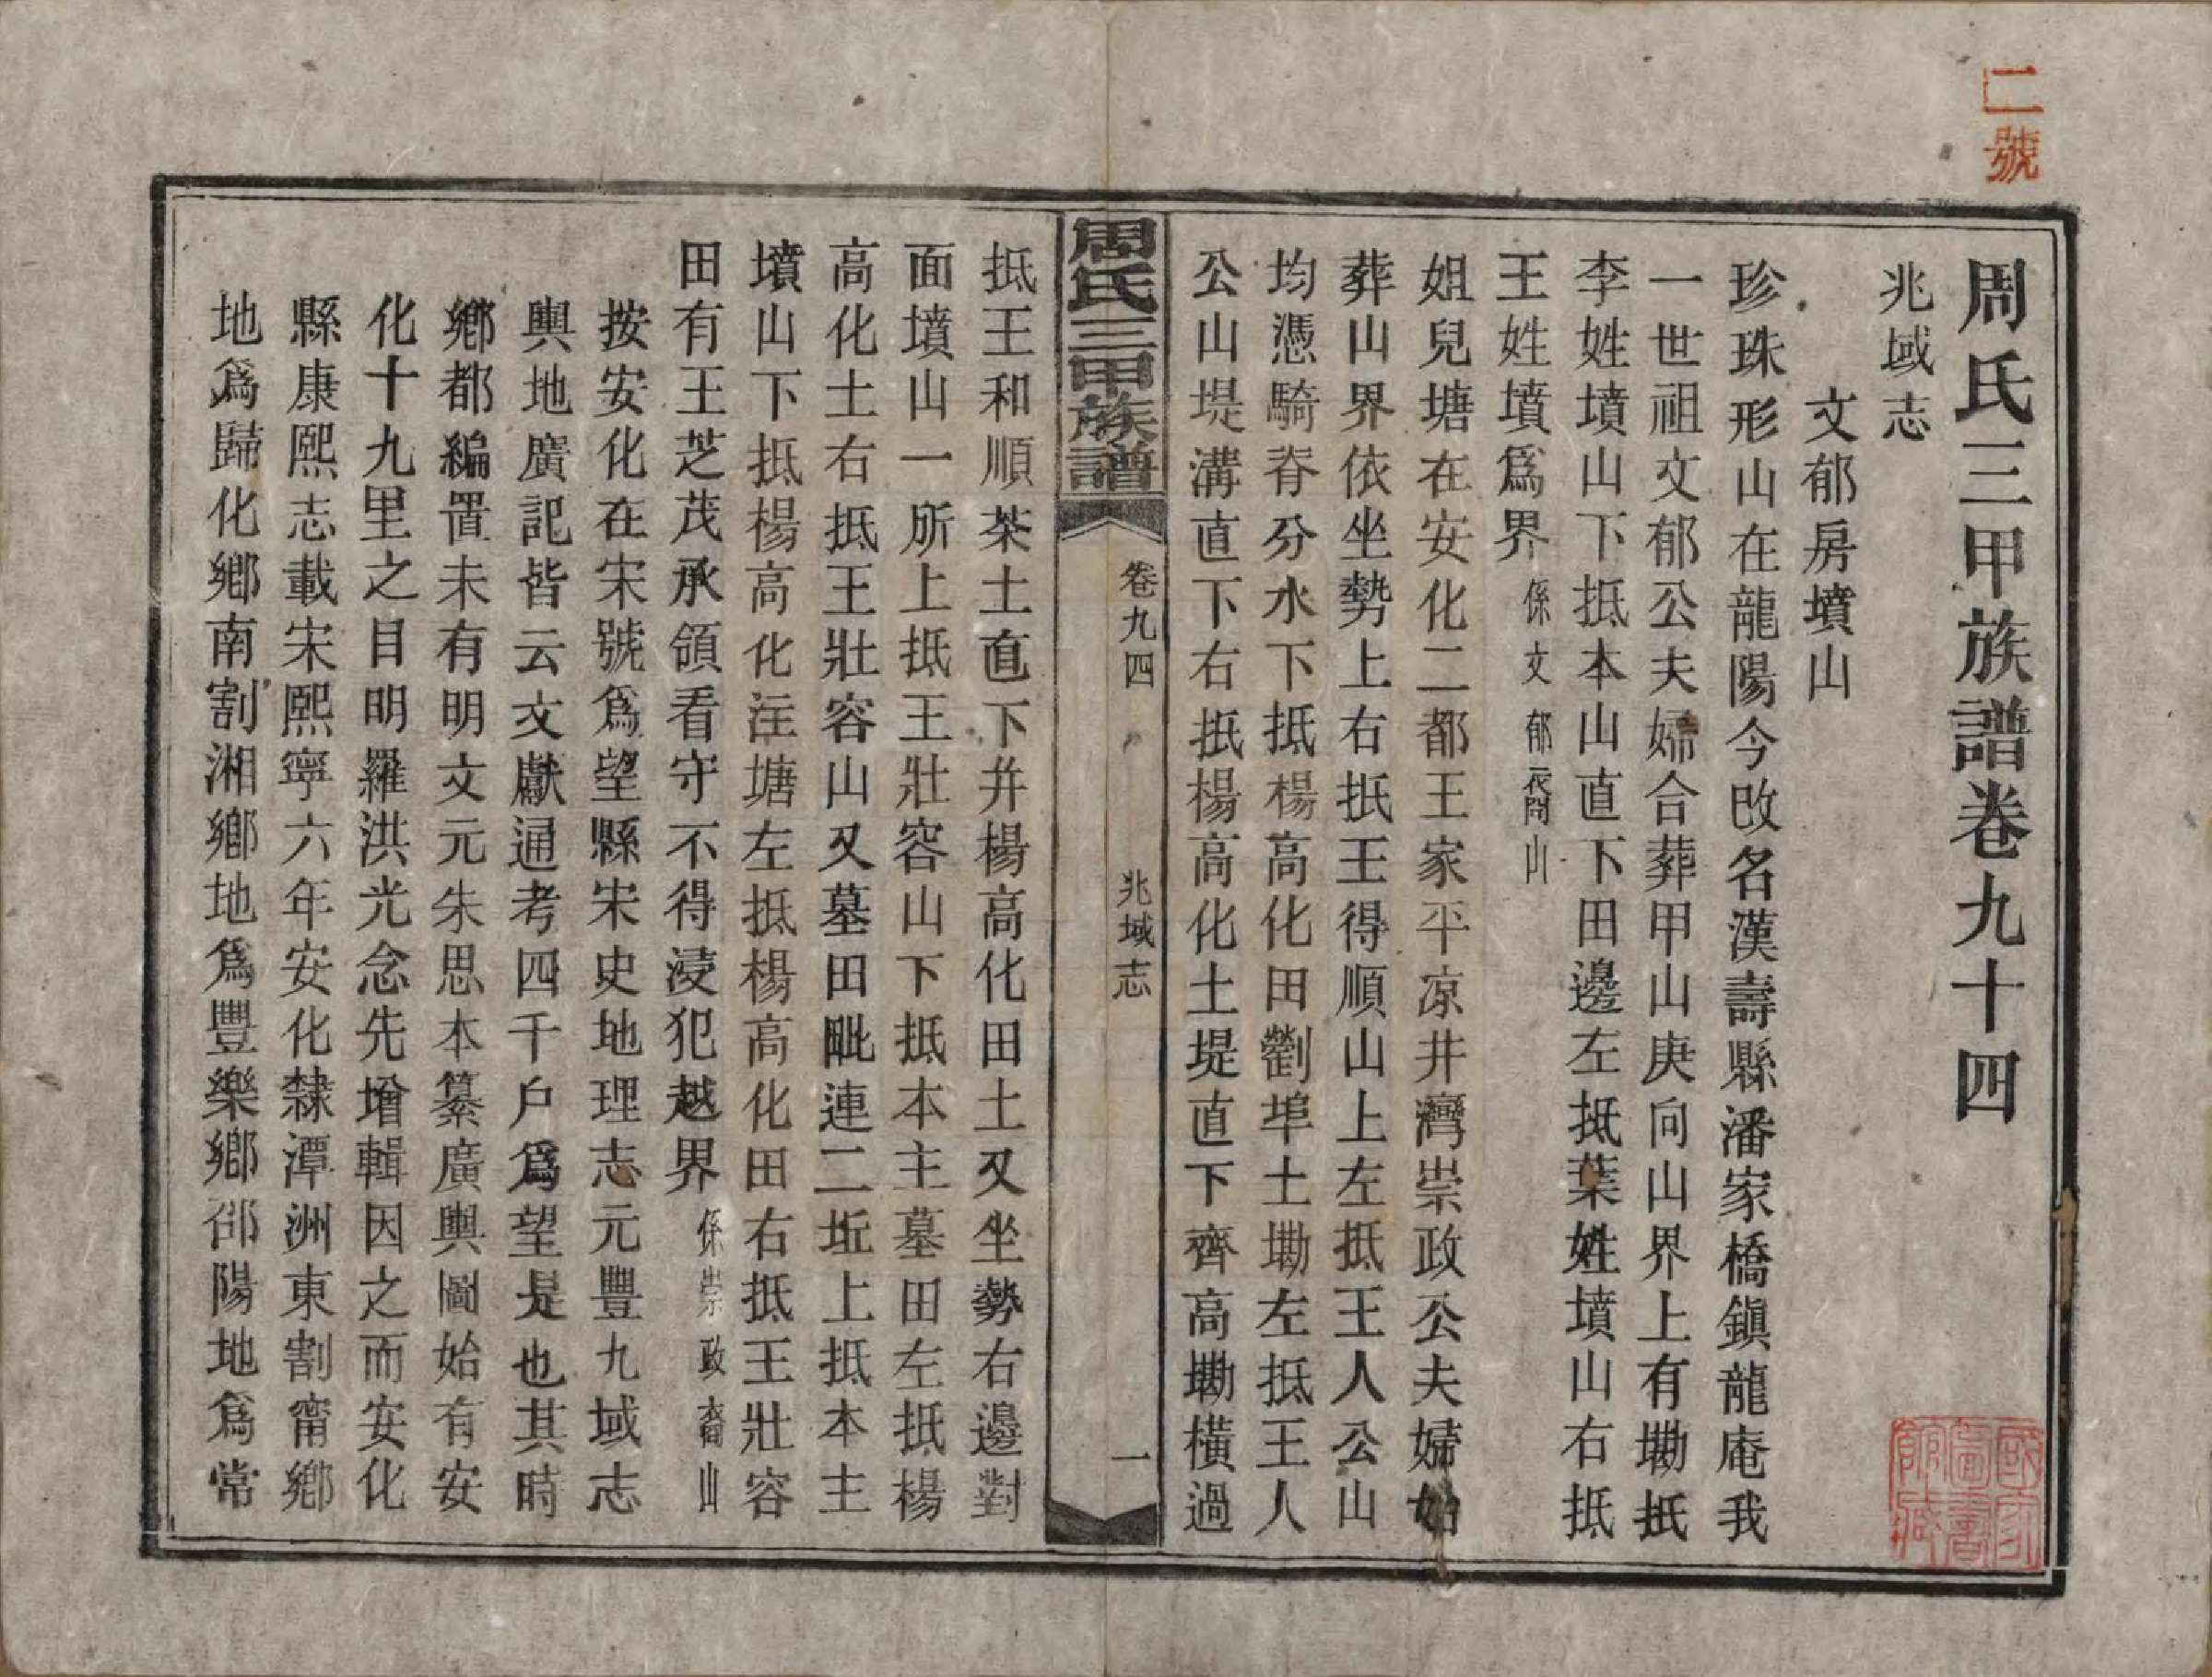 二號
周氏三甲族譜卷九十四
兆域志
文郁房墳山
珍珠形山在龍陽今改名漢壽縣潘家橋鎭龍庵我
一世祖文郁公夫婦合葬甲山庚向山界上有墈抵
李姓墳山下抵本山直下田邊左抵葉姓墳山右抵
王姓墳爲界係文郁裔山
姐兒塘在安化二都王家平凉井灣崇政公夫婦始
葬山界依坐勢上右抵王得順山上左抵王人公山
均憑騎脊分水下抵楊高化田劉埠土墈左抵王人
公山堤溝直下右抵楊高化土堤直下齊高墈橫過
周氏三甲族譜
卷九四
兆域志
一
抵王和順茶土直下幷楊高化田土又坐勢右邊對
面墳山一所上抵王壯容山下抵本主墓田左抵楊
高化土右抵王壯容山又墓田毗連二坵上抵本主
墳山下抵楊高化注塘左抵楊高化田右抵王壯容
田有王芝茂承領看守不得浸犯越界係崇政裔山
按安化在宋號爲望縣宋史地理志元豐九域志
輿地廣記皆云文獻通考四千户爲望是也其時
鄉都編置未有明文元朱思本纂廣輿圖始有安
化十九里之目明羅洪光念先增輯因之而安化
縣康熙志載宋熙寧六年安化隸潭洲東割甯鄉
地爲歸化鄉南割湘鄉地爲豐樂鄉邵陽地爲常
國家圖書館藏